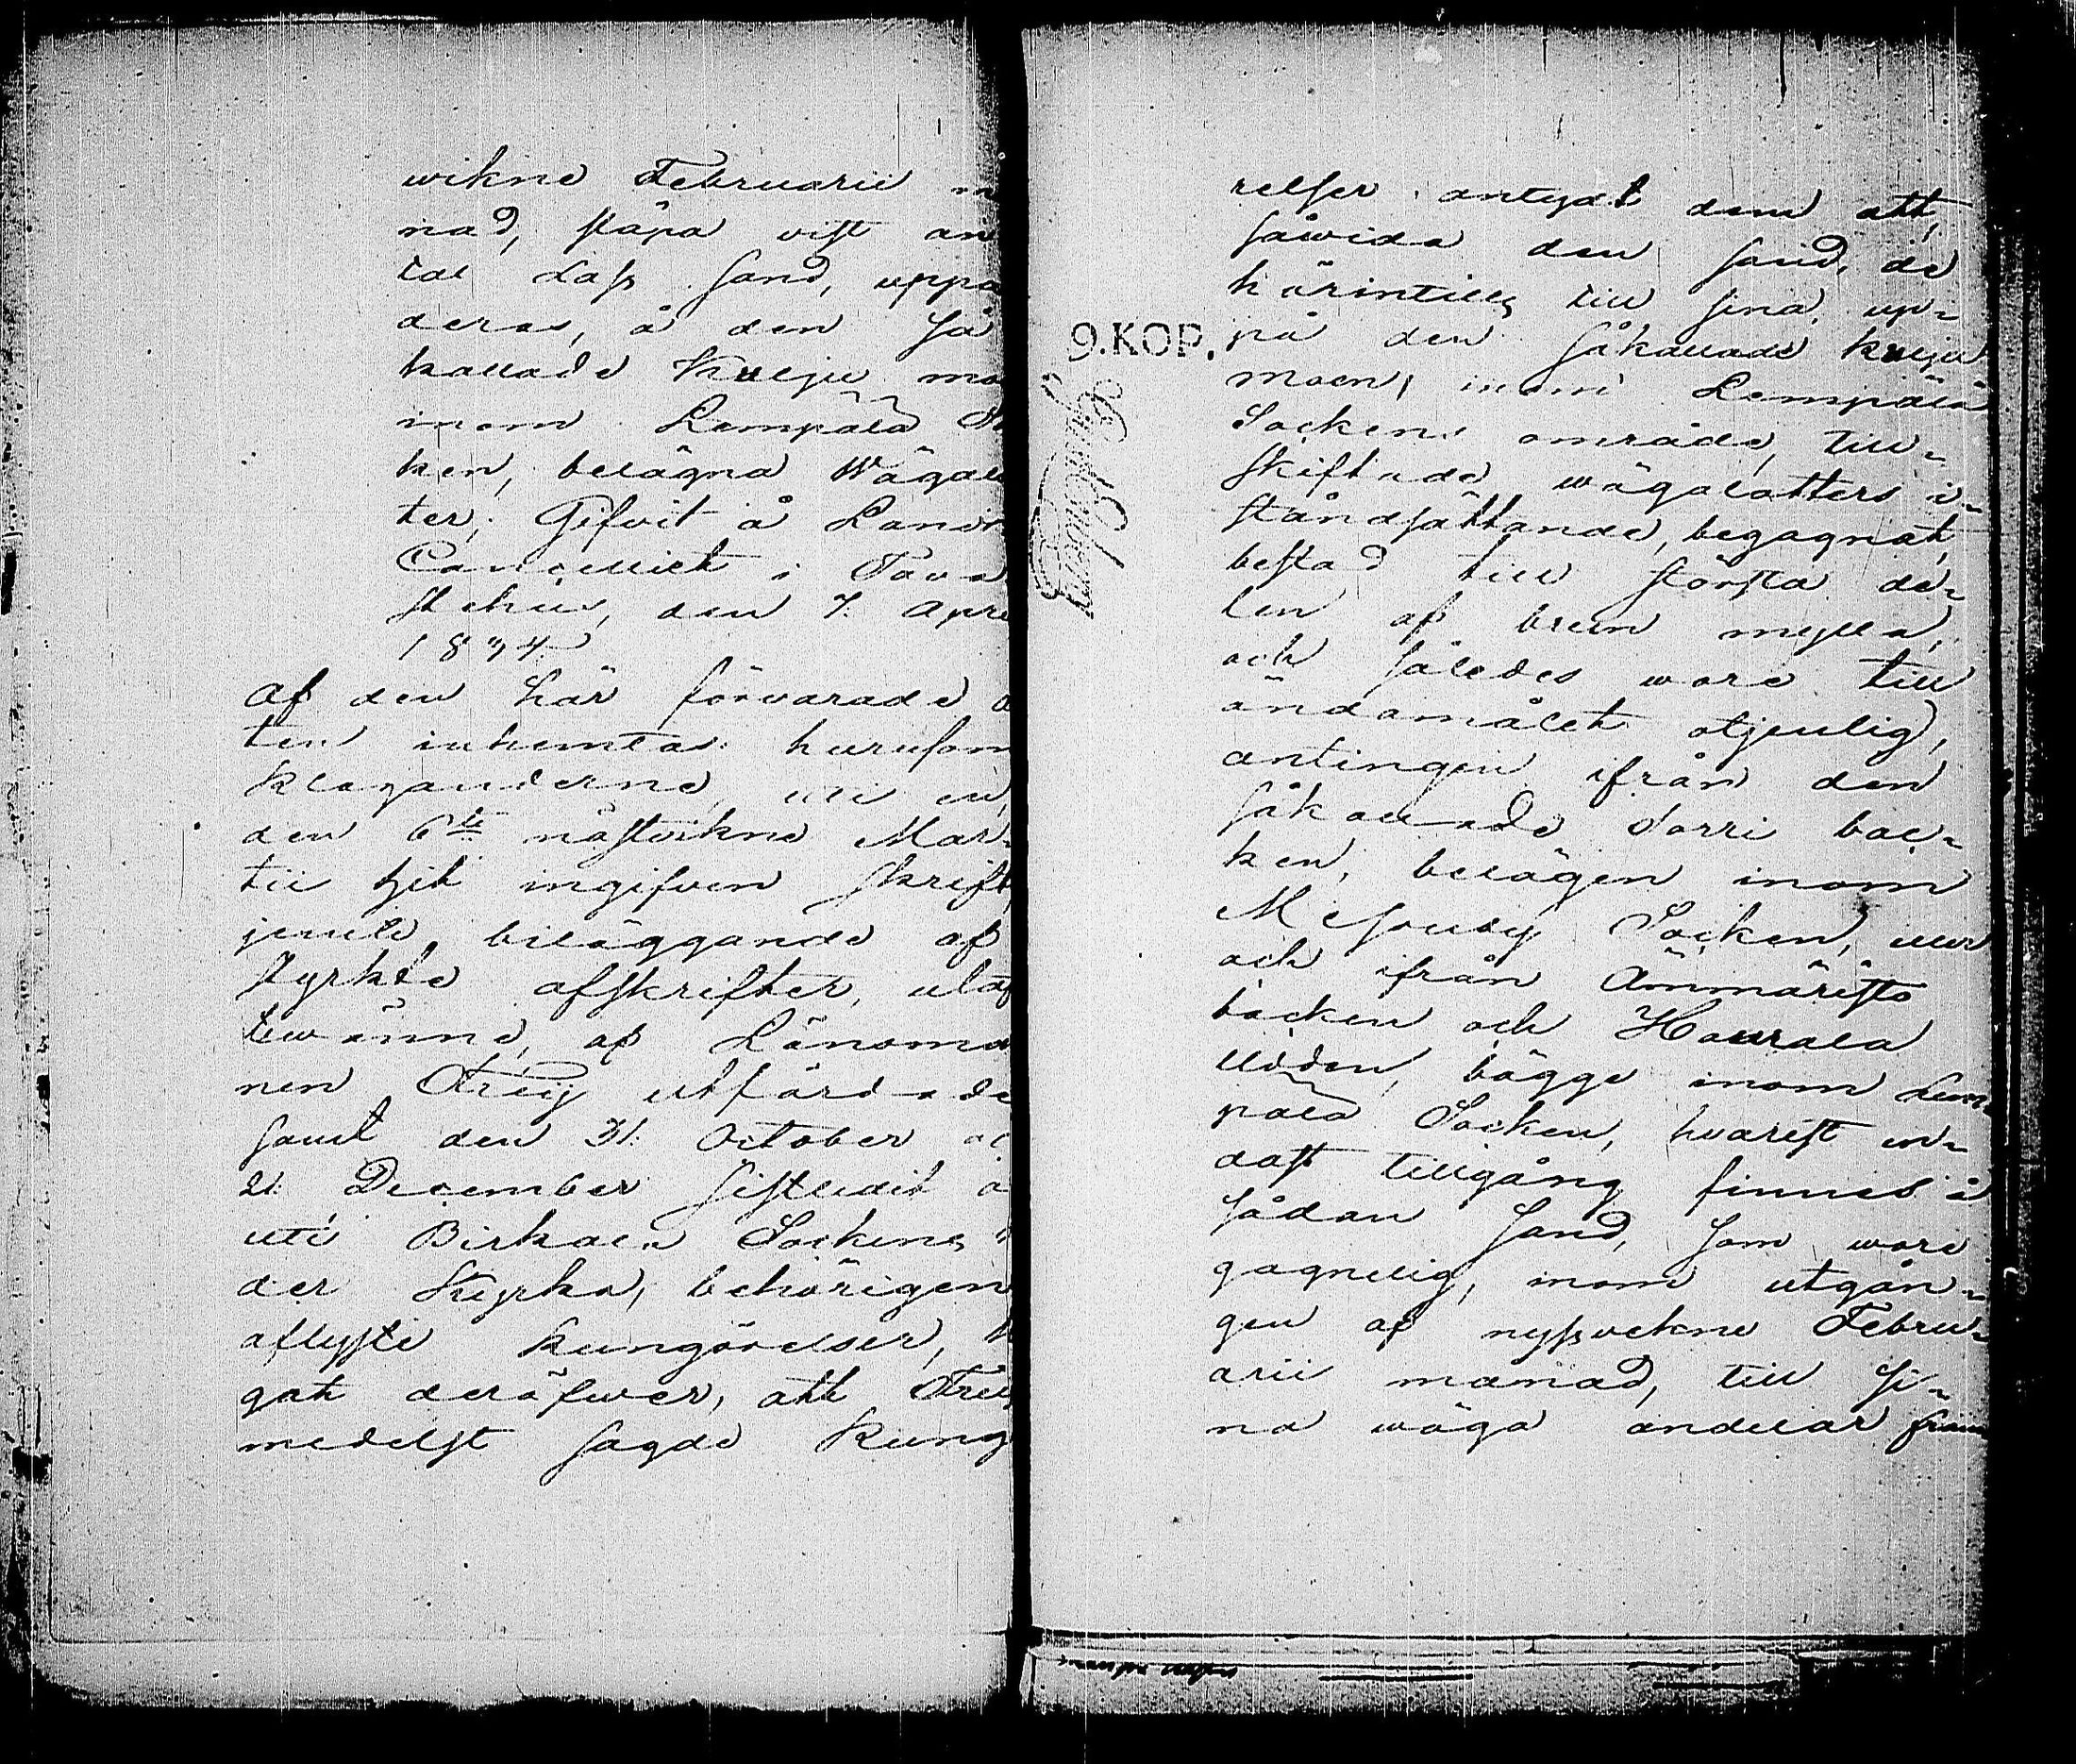 wikne Februarii m
nad, släpa wist an
tal Lass sand, uppå
deras, å den så
kallade Kulju mo
inom Lempälä S
ken, belägna Wägalå
ter; Gifvit å Lands
Cancelliet i Tava
stehus, den 7. Apri
1834
Af den här förvarade a
ten inhemtas hurusom
Klaganderne, uti en,
den 6te nästvikne Mar-
tii hit ingifven skrift
jemte biläggande af
styrkte afskrifter, utaf
tvänne, af Länsma
nen Freij utfärdade
samt den 31. October oc
21. December sistledit å
uti Birkala Sockens
der Kyrka, behörigen
aflyste kungörelser,
gat deröfwer, att Freij
medelst sagde Kung
9.KOP.
relser antydt dem att,
såwida den sand, de
härintills till sina, up-
på den såkallade Kulju
moen, inom Lempälä
Sockens område, till-
skiftade wägalotters i-
ståndsättande, begagnat,
bestod till största de-
len af brun mylla,
och således wore till
ändamålet otjenlig,
antingen ifrån den
såkallade Sorri bac-
ken, belägen inom
Messuby Socken, eller
och ifrån Ämmäristö
backen och Haurala
udden, bägge inom Lem-
pälä Socken, hvarest en-
dast tillgång finnes å
sådan Sand, som wore
gagnelig, inom utgån-
gen af nyssvekne Febru-
arii månad, till si-
na wäga andelar fram